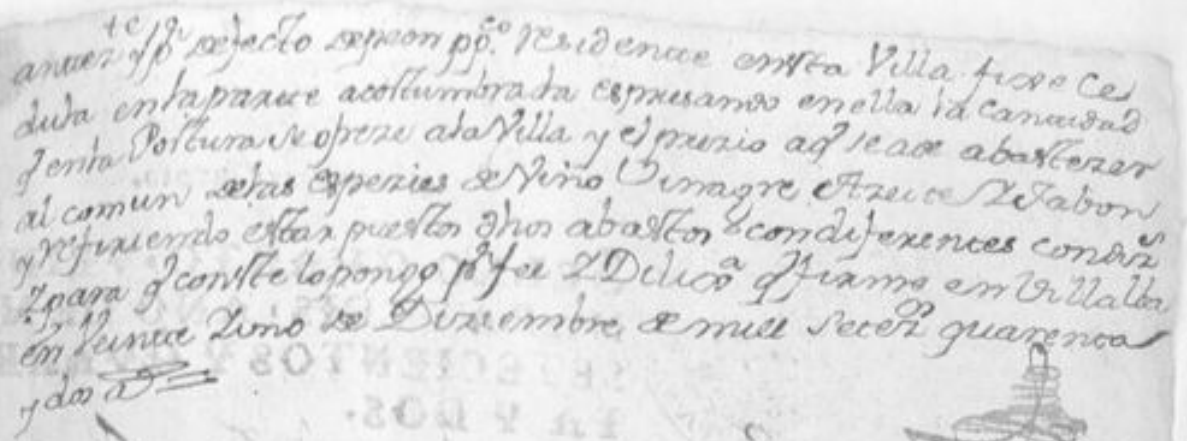 antez.te y qe pr defecto de peon ppco. residente en esta Villa fixe Ce
dula en la parte acostumbrada espresando en ella la cantidad
q en la Postura se ofreze a la Villa y el prezio a q se a de abastezer
al comun de las espezies de Vino Vinagre Azeite y Jabon
y refiriendo estar puestos dhos abastos con diferentes condizs
y para q conste lo pongo pr fee y Dilixa q firmo en Villalba
en Veinte y uno de Diziembre de mill Setezs quarenta
y dos as